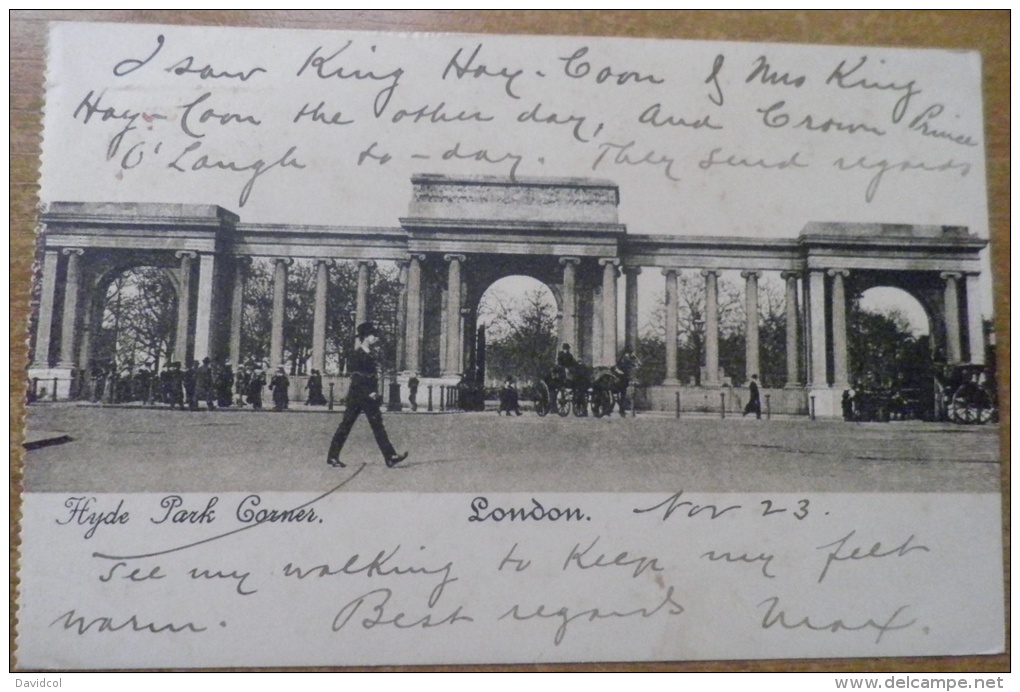 I saw King Hay-Coon & Mrs King
Hay-Coon the other day, and Crown Prince
O'Laugh to-day. They send regards
Hyde Park Corner. London. Nov 23.
See my walking to keep my felt
warm. Best regards Max.
© Davidcol
www.delcampe.net